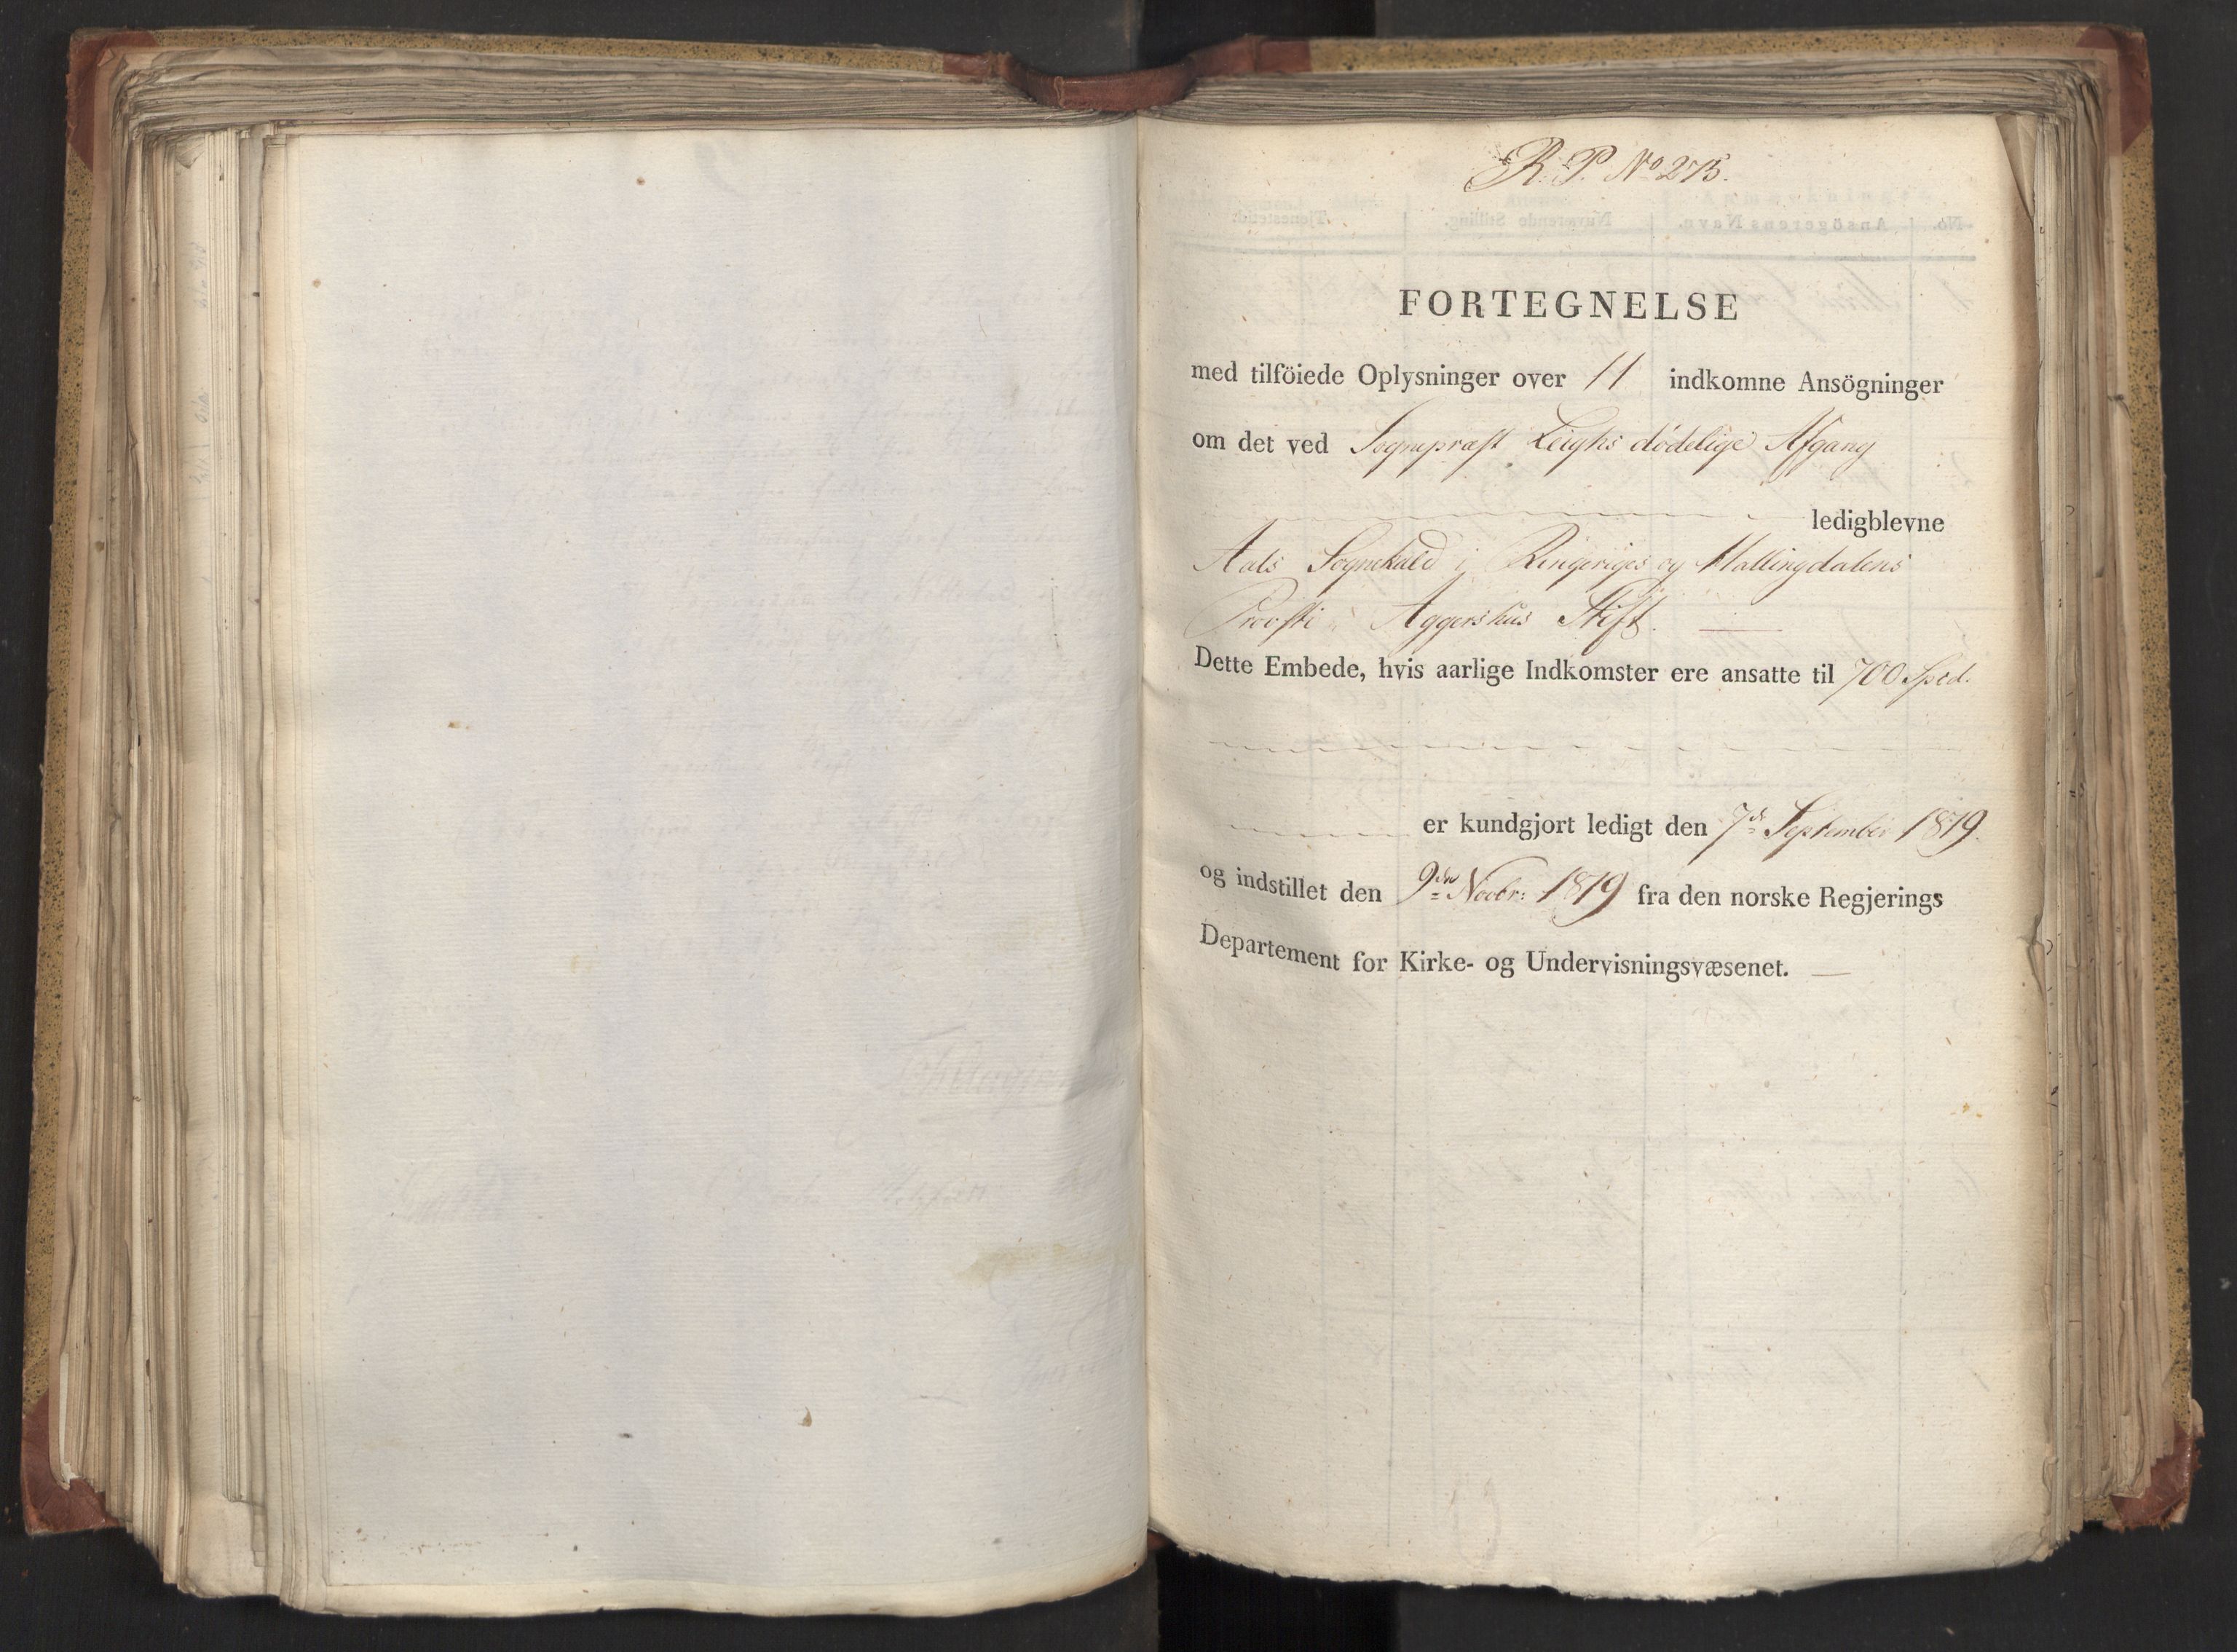 R. P. No 275.
FORTEGNELSE
med tilföiede Oplysninger over 11 indkomne Ansögninger
om det ved Sognepræst Leighs dödelige Afgang
ledigblevne
Aals Sognekald i Ringeriges og Hallingdalens
Provsti i Aggershus Stift.
Dette Embede, hvis aarlige Indkomster ere ansatte til 700 Spd.
er kundgjort ledigt den 7de September 1819.
og indstillet den 9de Novbr: 1819 fra den norske Regjerings
Departement for Kirke- og Undervisningsvæsenet.